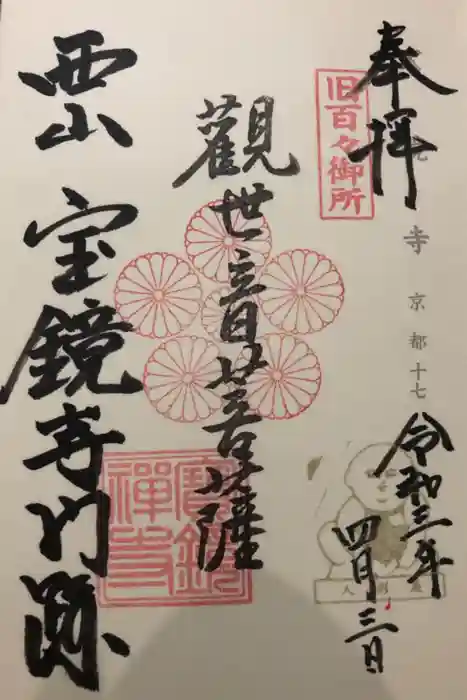 奉拝
旧百々御所
寺 京都十七
令和三年
四月三日
觀世音菩薩
寶鏡
禅寺
西山 宝鏡寺門跡